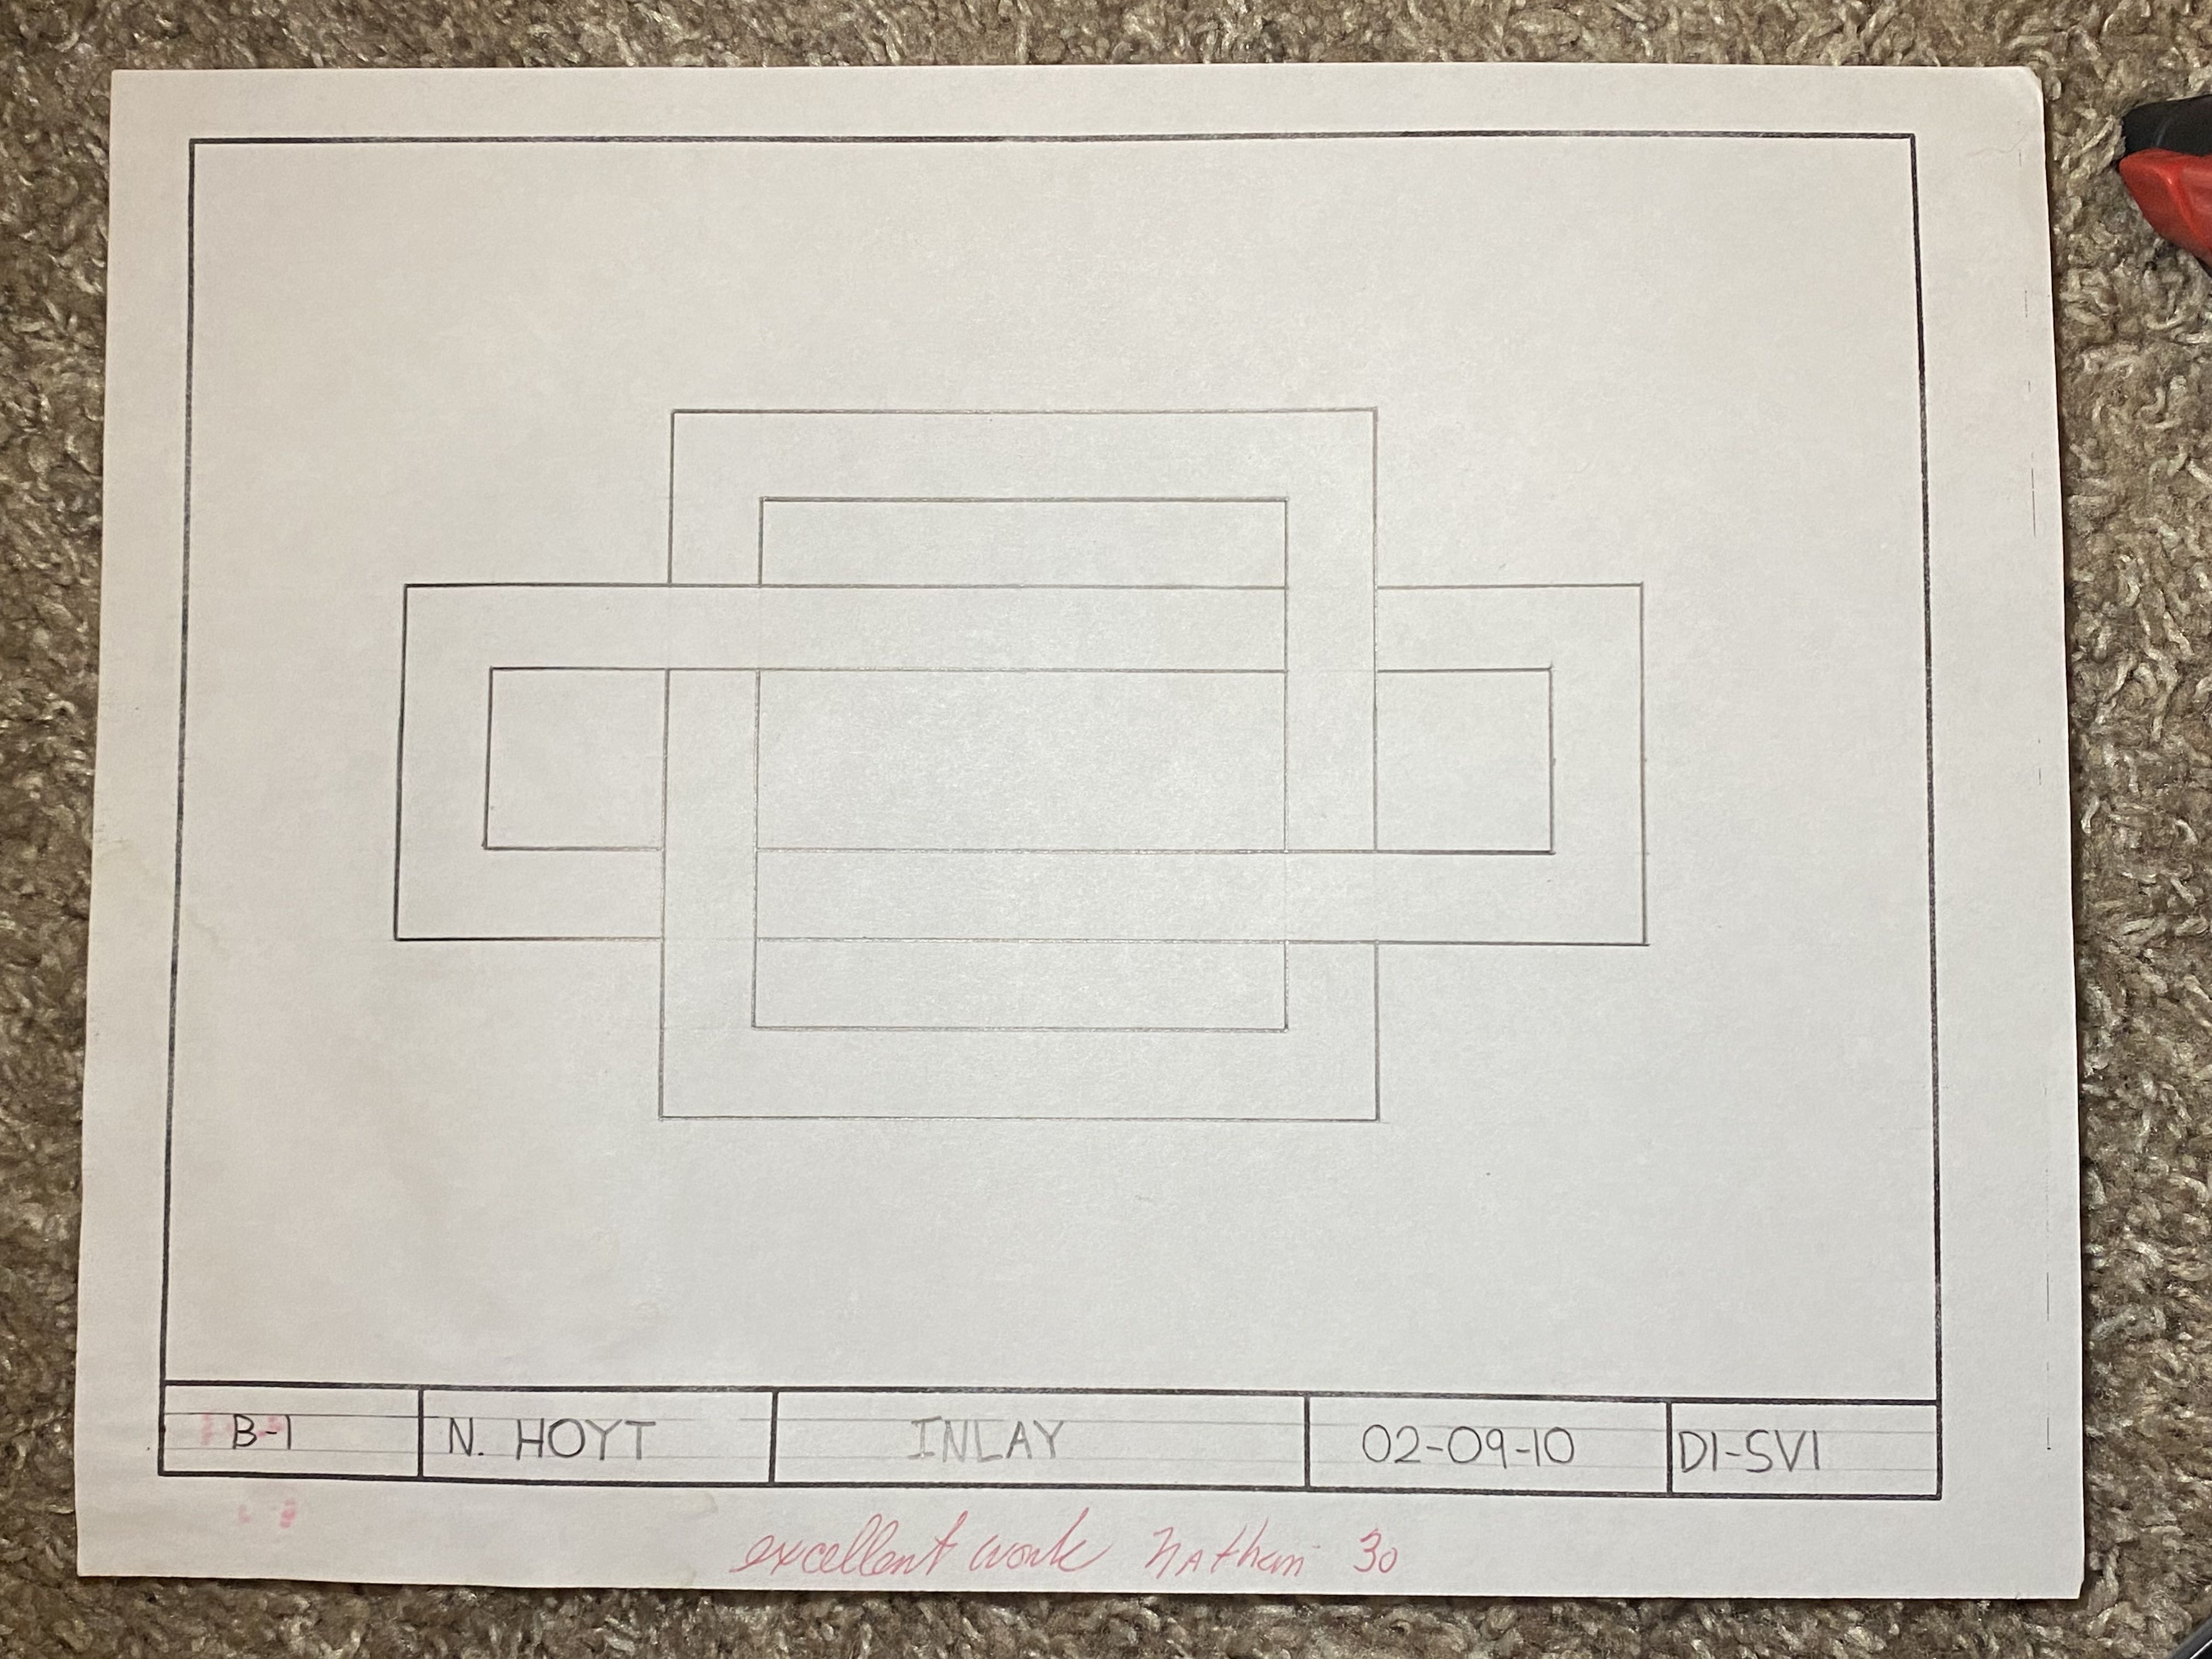 B-1 N. HOYT INLAY 02-09-10 D1-SV1
excellent work Nathan 30